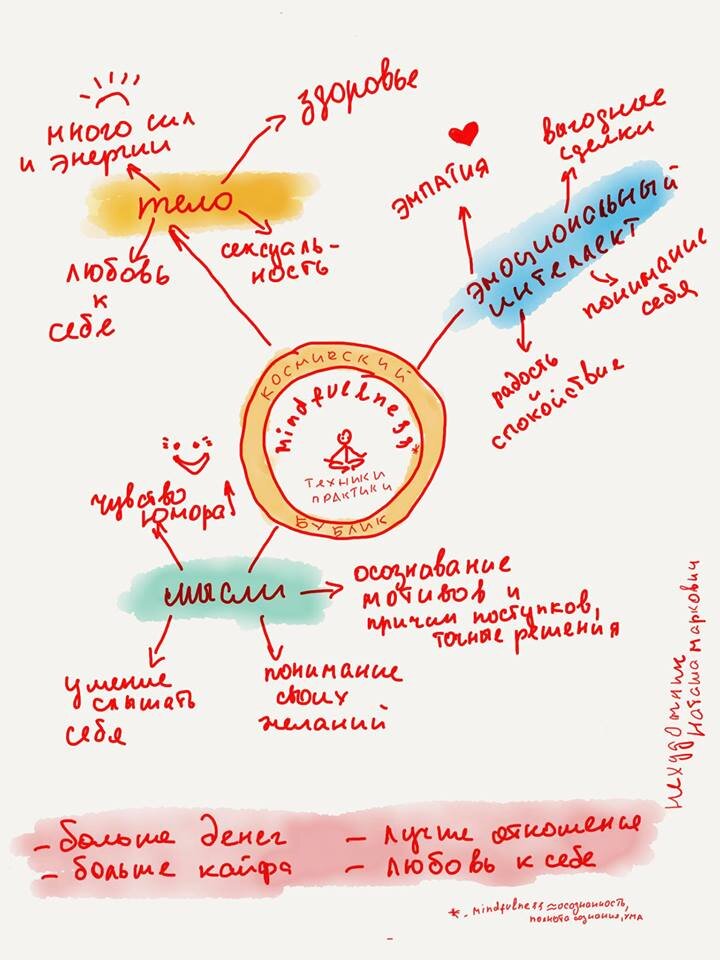 много сил
и энергии
здоровье
тело
любовь
к
себе
сексуаль-
ность
эмпатия
выгодные
сделки
эмоциональный
интеллект
понимание
себя
радость
и
спокойствие
космический
mindfullness*
техники
практики
бублик
чувство
юмора
мысли
осознавание
мотивов и
причин поступков,
точные решения
умение
слышать
себя
понимание
своих
желаний
нехудожник
Наташа Маркович
- больше денег
- больше кайфа
- лучше отношения
- любовь к себе
*- mindfulness ≈ осознанность,
полнота сознания, ума